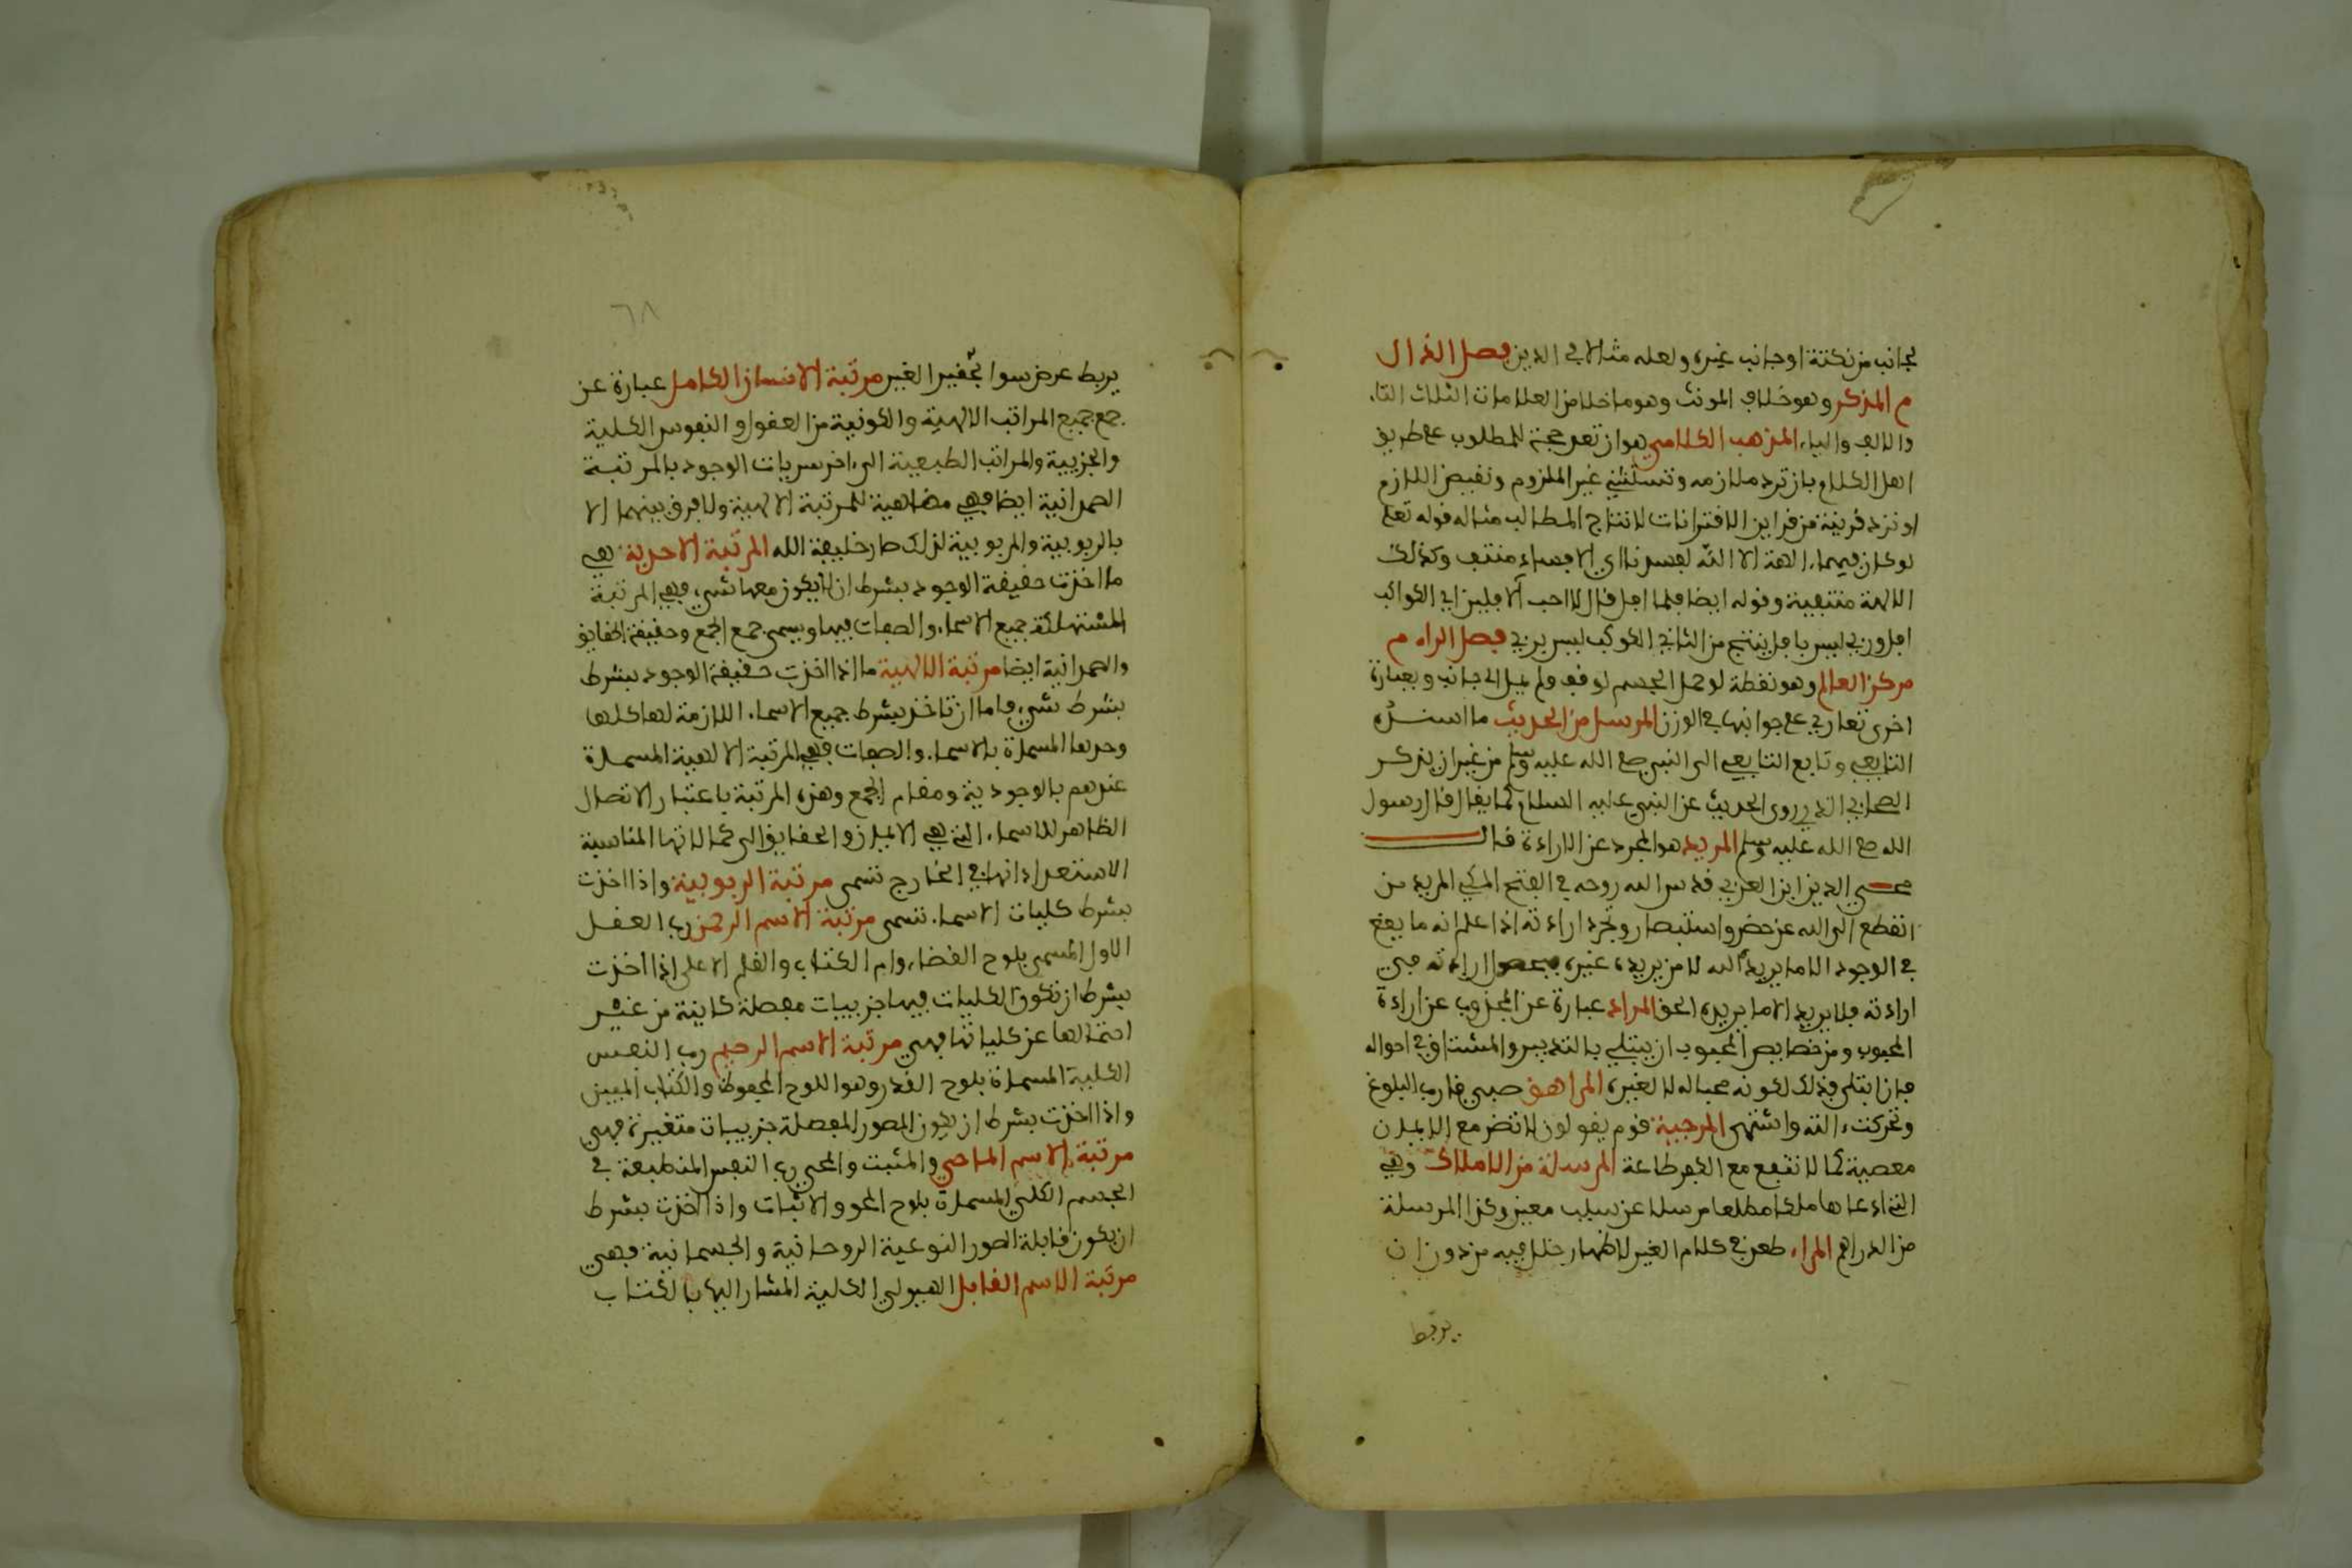 بجانب من نكتة او جانب غيره ولعله مثالا في الدين فصل الذال
م المذكر وهو خلاف المونث وهو ما خلا من العلامات الثلاث التاء
والالف والياء المذهب الكلامي هو ان تعد حجة للمطلوب على طريق
اهل الكلام بان ترد ملازمه وتستثني غير الملزوم ونقيض اللازم
او نرد قرينة من قراين الاقترانات لانتاج المطالب مثاله قوله تعلى
لو كان فيهما الهة الا الله لفسدتا اي الافساد منتف وكذلك
الالهة منتفية وقوله ايضا فلما افل قال لا احب الافلين اي الكواكب
افل وربي ليس بافل ينتج من الثاني الكوكب ليس بربي فصل الراء م
مركز العالم وهو نقطة لو حمل الجسم لوقف ولم يمل الى جانب وبعبارة
اخرى تعادل على جوانبها في الوزن المرسل من الحديث ما اسنده
التابعي وتابع التابعي الى النبي صلى الله عليه وسلم من غير ان يذكر
الصحابي الذي روى الحديث عن النبي عليه السلام كما يقال قال رسول
الله صلى الله عليه وسلم المريد هو المجرد عن الارادة قال
محي الدين ابن العربي قدس الله روحه في الفتح المكي المريد من
انقطع الى الله عن نظر واستبصار وتجرد ارادته اذا علم انه ما يقع
في الوجود الا ما يريد الله لا من يريده غيره ارادته في
ارادته فلا يريد الا ما يريده الحق المراد عبارة عن المجذوب عن ارادة
المحبوب ومن خصايص المحبوب ان يبتلى بالتدبير والمشتاق في احواله
فان ابتلى فذلك لكونه محبا له لا لغيره المراهق صبي قارب البلوغ
وتحركت الته واشتهى المرجية قوم يقولون لا تضر مع الايمان
معصية كما لا تنفع مع الكفر طاعة المرسلة من الاملاك وهي
التي ادعاها ملكا مطلقا مرسلا عن سبب معين وكذا المرسلة
من الدراهم المراء طعن في كلام الغير لاظهار خلل فيه من دون ان
يربط
٦٨
يربط عرض سوا تحقير الغير مرتبة الانسان الكامل عبارة عن
جمع جميع المراتب الالهية والكونية من العقول والنفوس الكلية
والجزيية والمراتب الطبيعية الى اخر سريات الوجود بالمرتبة
العمدانية ايضا فهي مضاهية للمرتبة الالهية ولا فرق بينهما الا
بالربوبية والمربوبية لذلك صار خليفة الله المرتبة الاحدية هي
ما اخذت حقيقة الوجود بشرط ان لا يكون معها شي فهي المرتبة
المستهلكة جميع الاسماء والصفات فيها ويسمى جمع الجمع وحقيقة الحقايق
والعمدانية ايضا مرتبة الالهية ما اذا اخذت حقيقة الوجود بشرط
بشرط شي فاما ان تاخذ بشرط جميع الاسماء اللازمة لها كلها
وحدها المسماة بالاسماء والصفات فهي المرتبة الالهية المسماة
عندهم بالوجودية ومقام الجمع وهذه المرتبة باعتبار الاتصال
الظاهر للاسماء التي هي الاعيان والحقايق الى كمالاتها المناسبة
الاستعداداتها في الخارج تسمى مرتبة الربوبية واذا اخذت
بشرط كليات الاسماء تسمى مرتبة الاسم الرحمن رب العقل
الاول المسمى بلوح القضاء وام الكتاب والقلم الاعلى اذا اخذت
بشرط ان تكون الكليات فيها جزييات مفصلة كاينة من غير
احتمالها عن كلياتها فهي مرتبة الاسم الرحيم رب النفس
الكلية المسماة بلوح القدر وهو اللوح المحفوظ والكتاب المبين
واذا اخذت بشرط ان يكون الصور المفصلة جزييات متغيرة فهي
مرتبة الاسم الماحي والمثبت والمحيي رب النفس المنطبعة في
الجسم الكلي المسماة بلوح المحو والاثبات واذا اخذت بشرط
ان يكون قابلة الصور النوعية الروحانية والجسمانية فهي
مرتبة الاسم القابل الهيولى الكلية المشار اليها بالكتاب